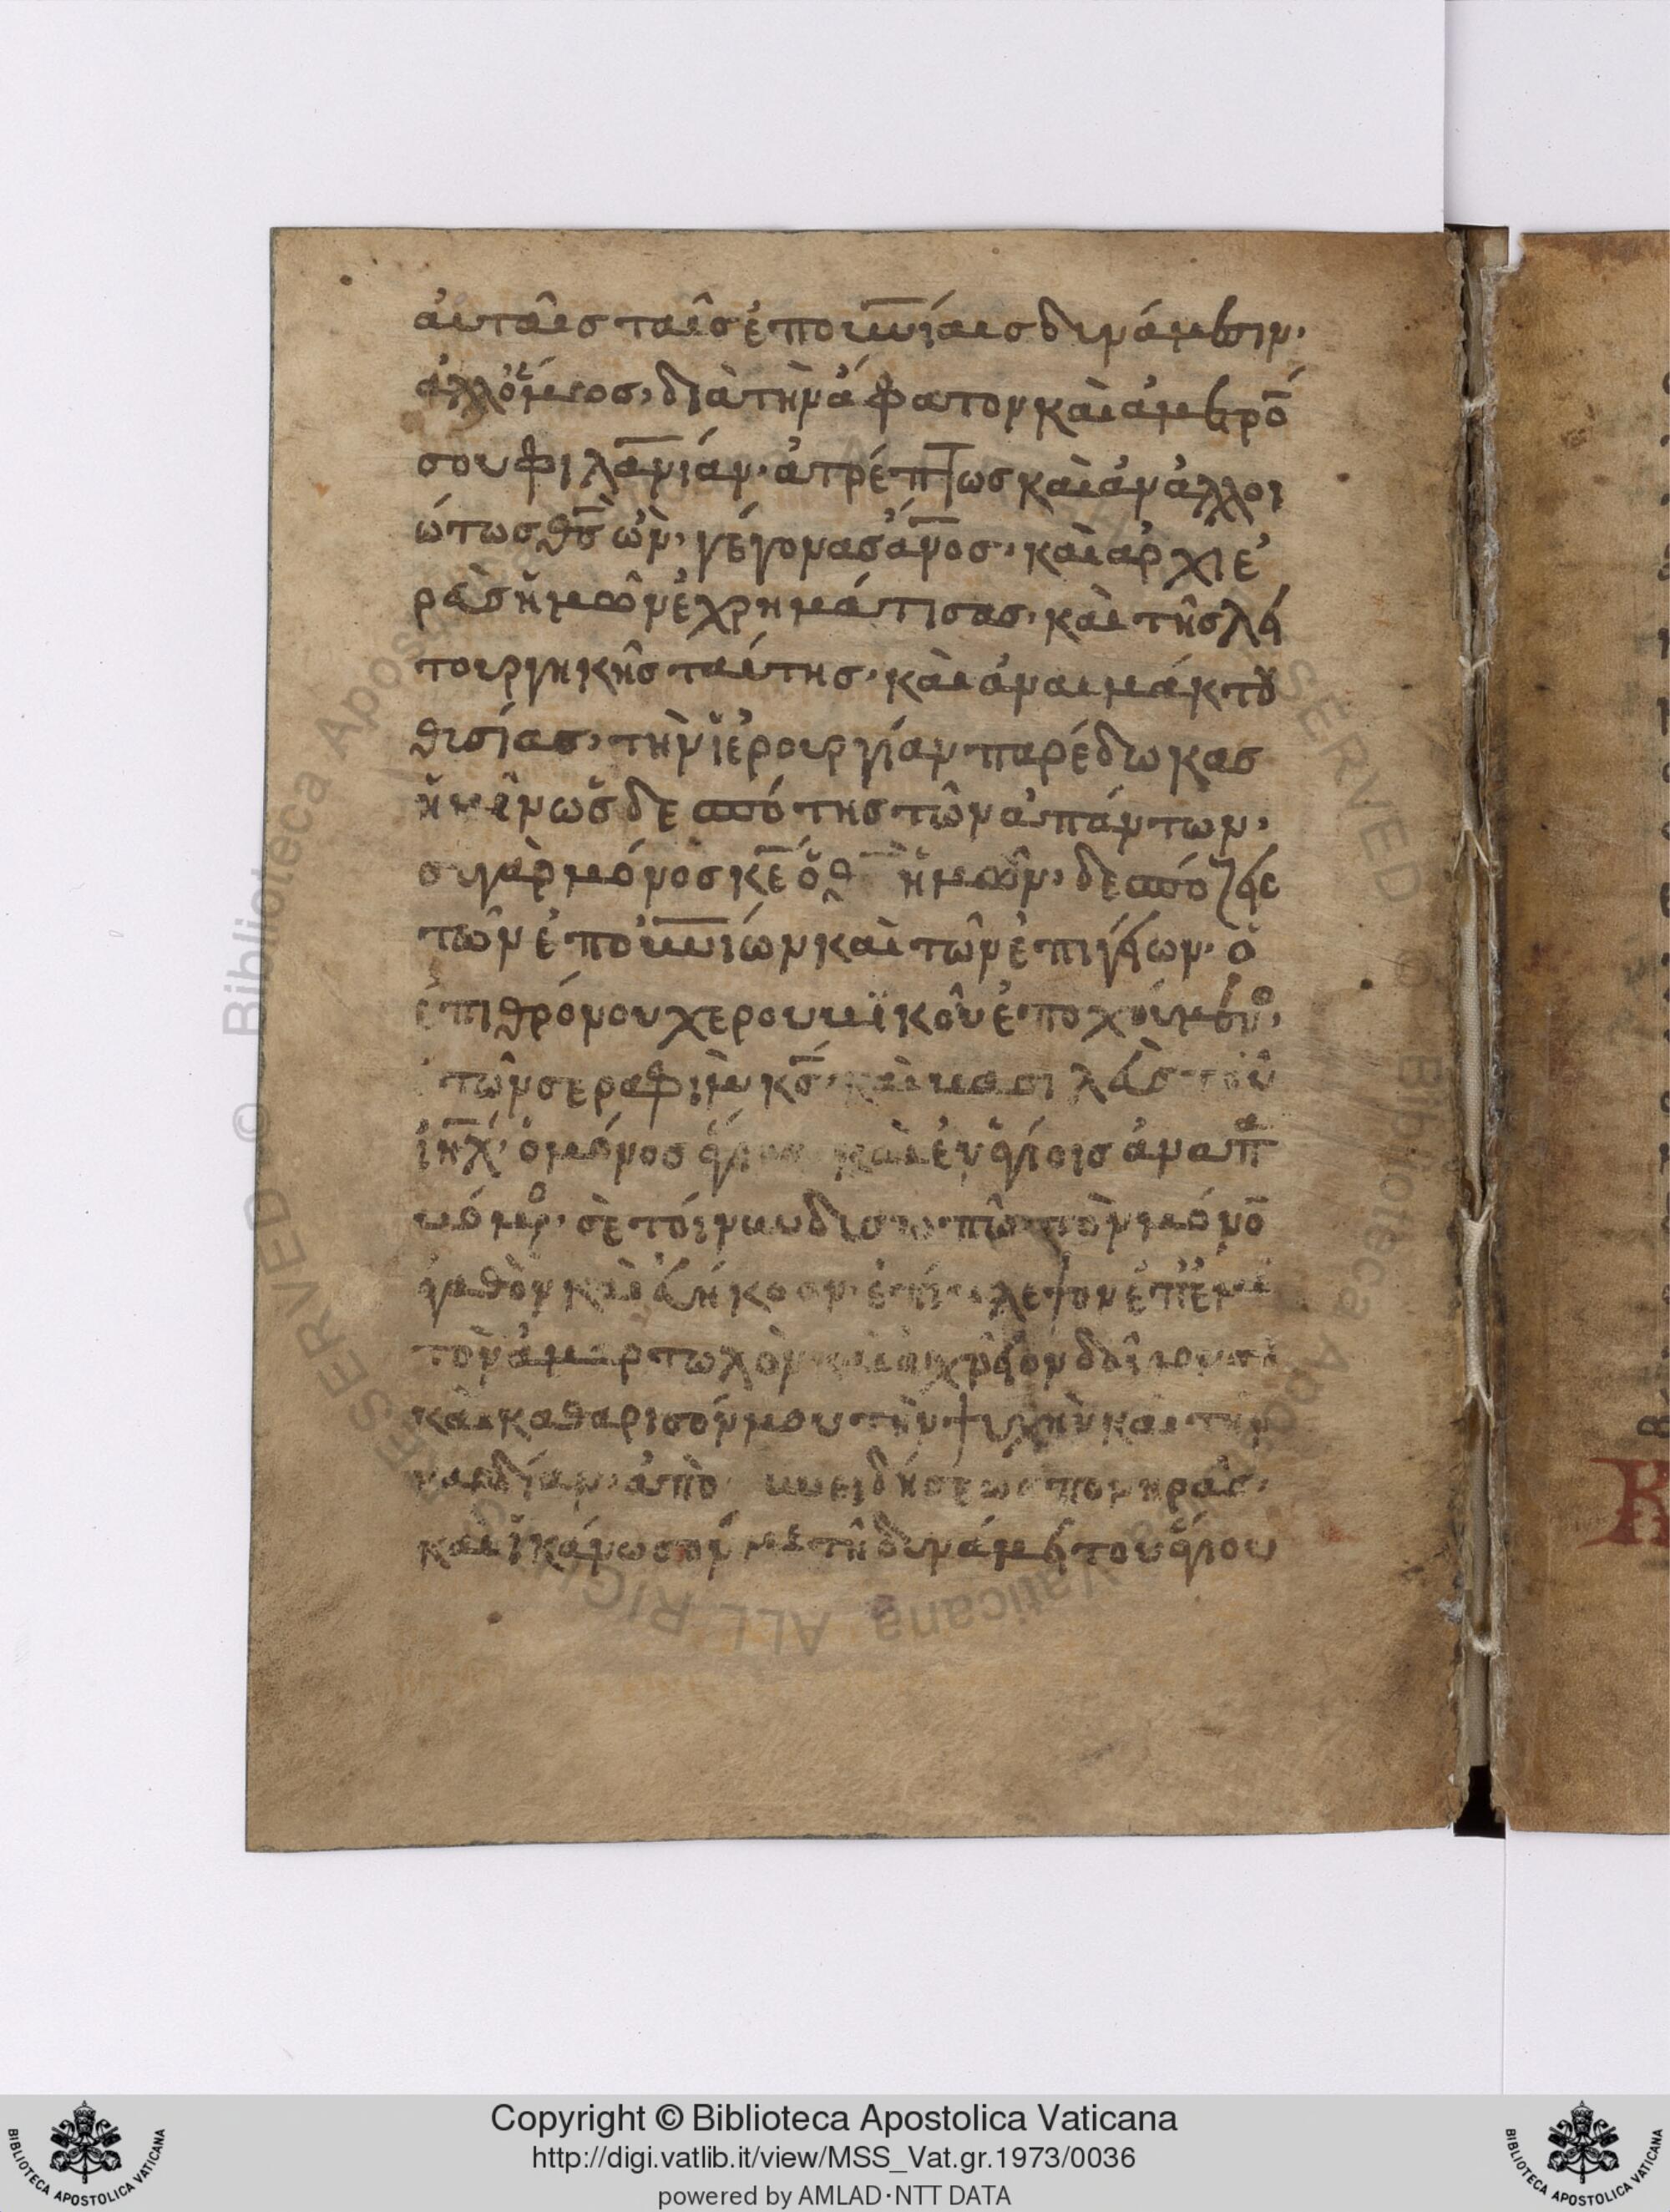 ἀυταῖς ταῖς ἐπου̅ν̅ίαις δυνάμεσιν·
ἀλλ' ὅμως· διὰ τὴν ἄφατον καὶ ἀμετρό
σου φιλα̅νίαν· ἀτρέπτως καὶ ἀναλλοι
ώτως θ̅ς̅ ὢν· γέγονας ἄν̅ος· καὶ ἀρχιε
ρεὺς ἡμῶν ἐχρημάτισας· καὶ τῆς λει
τουργηκῆς ταύτης· καὶ ἀναιμάκτου
θυσίας· τὴν ἱερουργίαν παρέδωκας
ἡμῖν ὡς δεσπότης τῶν ἁπάντων·
συ γὰρ μόνος κ̅ε̅ ὁ θ̅ς̅ ἡμῶν· δεσπόζεις
τῶν ἐπου̅ν̅ίων καὶ τῶν ἐπιγείων· ὁ
ἐπι θρόνου χερουβϊκοῦ ἐποχούμενος·
ὁ τῶν σεραφὶμ κ̅ς̅· καὶ βασιλεὺς τοῦ
ι̅η̅λ̅· ὁ μόνος ἅγιος καὶ ἐν ἁγίοις ἀναπα
υόμενος· σὲ τοίνυν δυσωπῶ τὸν μόνον
ἀγαθὸν καὶ εὐήκοον· ἐπίβλεψον ἐπ' ἐμὲ
τὸν ἁμαρτωλὸν καὶ ἀχρεῖον δοῦλον σου
καὶ καθαρισόν μου τὴν ψυχὴν καὶ τὴν
καρδίαν· ἀπὸ συνειδήσεως πονηρᾶς·
καὶ ἱκάνωσόν με τῆ δυνάμει του ἁγίου
Copyright © Biblioteca Apostolica Vaticana
http://digi.vatlib.it/view/MSS_Vat.gr.1973/0036
powered by AMLAD·NTT DATA
BIBLIOTECA APOSTOLICA VATICANA
BIBLIOTECA APOSTOLICA VATICANA